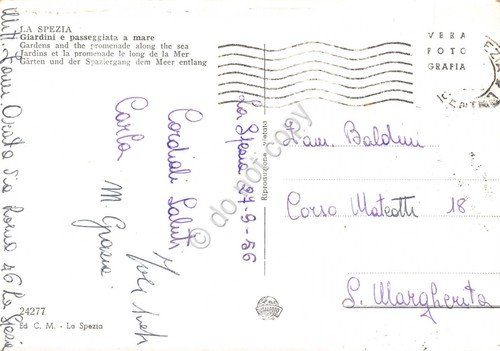 LA SPEZIA
Giardini e passeggiata a mare
Gardens and the promenade along the sea
Jardins et la promenade le long de la Mer
Gärten und der Spaziergang dem Meer entlang
VERA
FOTO
GRAFIA
La Spezia 27-9-56
Cordiali Saluti
Carla
M Grazia
Fam. Baldini
Corso Mateotti 18
S. Margherita
Via Roma 46 La Spezia
Riproduzione vietata
24277
Ed C. M. - La Spezia
© do not copy